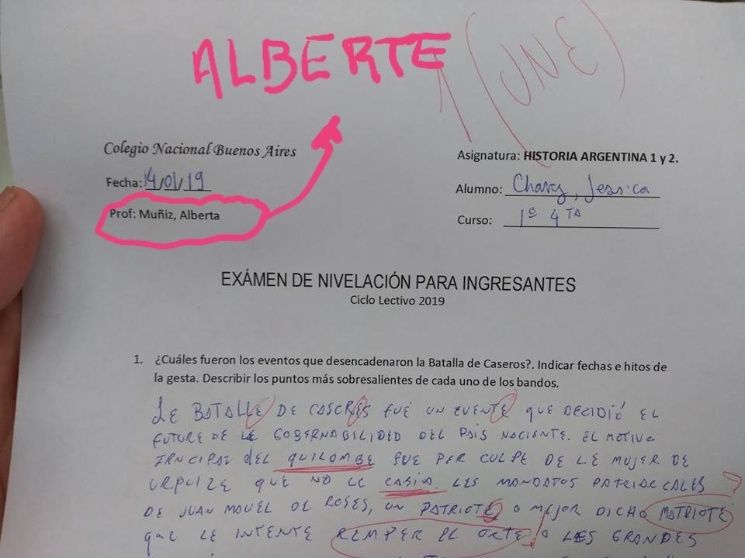 ALBERTE
1 (UNE)
Colegio Nacional Buenos Aires
Fecha: 14/01/19
Prof: Muñiz, Alberta
Asignatura: HISTORIA ARGENTINA 1 y 2.
Alumno: Chavez, Jessica
Curso: 1º 4TA
EXÁMEN DE NIVELACIÓN PARA INGRESANTES
Ciclo Lectivo 2019
1. ¿Cuáles fueron los eventos que desencadenaron la Batalla de Caseros?. Indicar fechas e hitos de
la gesta. Describir los puntos más sobresalientes de cada uno de los bandos.
LE BATALLE DE CASERES FUÉ UN EVENTE QUE DECIDIÓ EL
FUTURE DE LE GOBERNABILIDED DEL PAÍS NACIENTE. EL MOTIVO
PRINCIPAL DEL QUILOMBE FUE PER CULPE DE LE MUJER DE
URQUIZE QUE NO LE CASIA LES MANDATOS PATRIARCALES
DE JUAN MANUEL DE ROSES, UN PATRIOTE O MEJOR DICHO MATRIOTE
QUE LE INTENTE REMPER EL ORTE A LES GRANDES